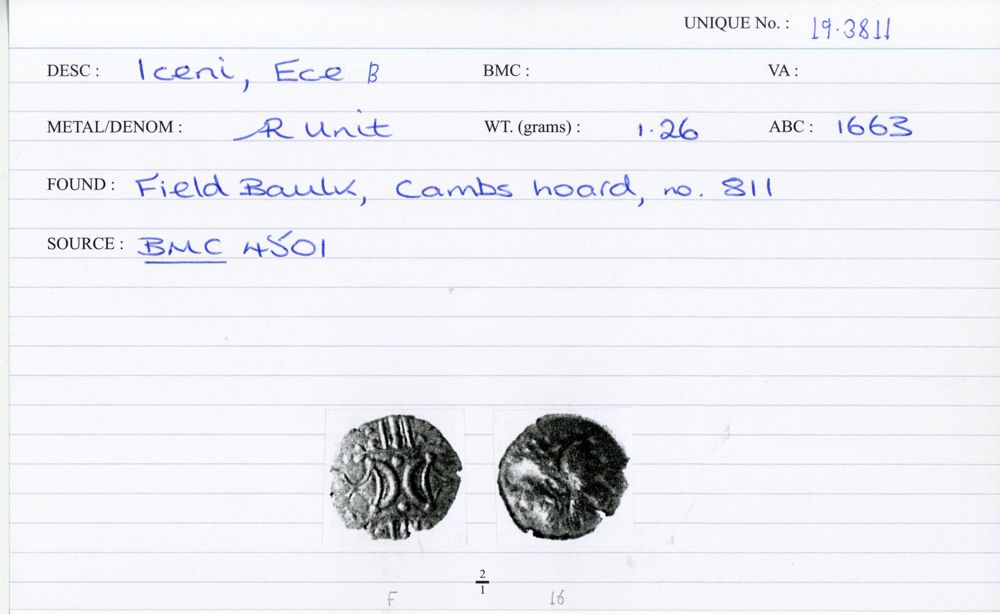 UNIQUE No. : 19.3811
DESC : Iceni, Ece B BMC : VA :
METAL/DENOM : AR Unit WT. (grams) : 1.26 ABC : 1663
FOUND : Field Baulk, Cambs hoard, no. 811
SOURCE : BMC 4501
2
1
F 16